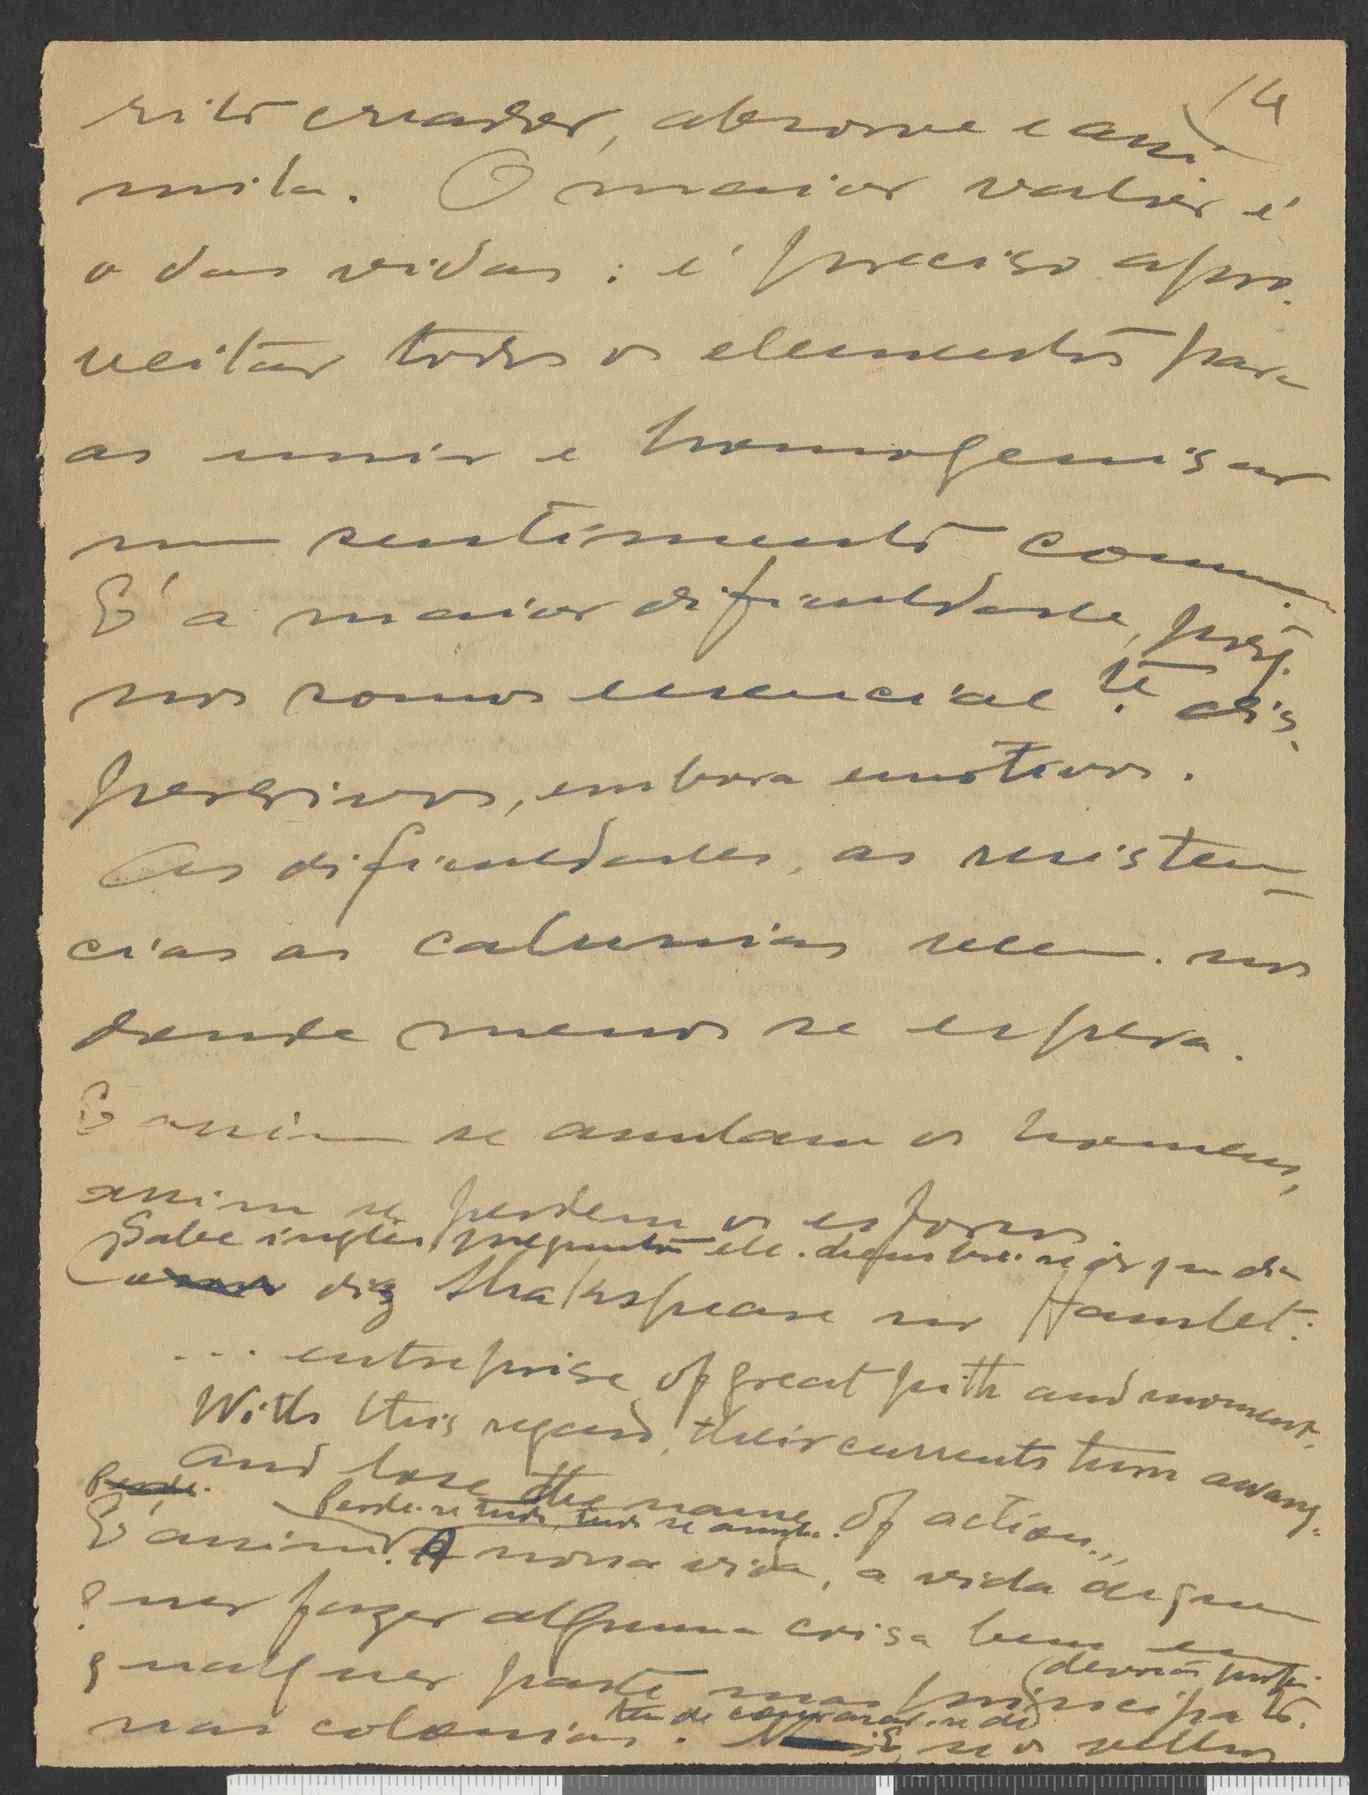 14
rito creador, absorve e assi
mila. O maior valor é
o das vidas: é preciso apro-
veitar todos os elementos para
as unir e homogenisar
num sentimento commum.
E' a maior dificuldade, porq.
nos somos essencial.te dis-
persivos, embora emotivos.
As dificuldades, as resisten-
cias as calumnias veem-nos
donde menos se espera.
E assim se anulam os homens,
assim se perdem os esforços
Sabe inglês, preguntou ele.
Como diz Shakspeare no Hamlet:
... entreprise of great pith and moment.
With this regard, their currents turn away.
and lose the name of action...
Perde. Perde-se tudo, tudo se anula.
E' assim. A nossa vida, a vida de quem
quer fazer alguma coisa bem em
qualquer parte mas principal.te
nas colonias. se os velhos
tem de